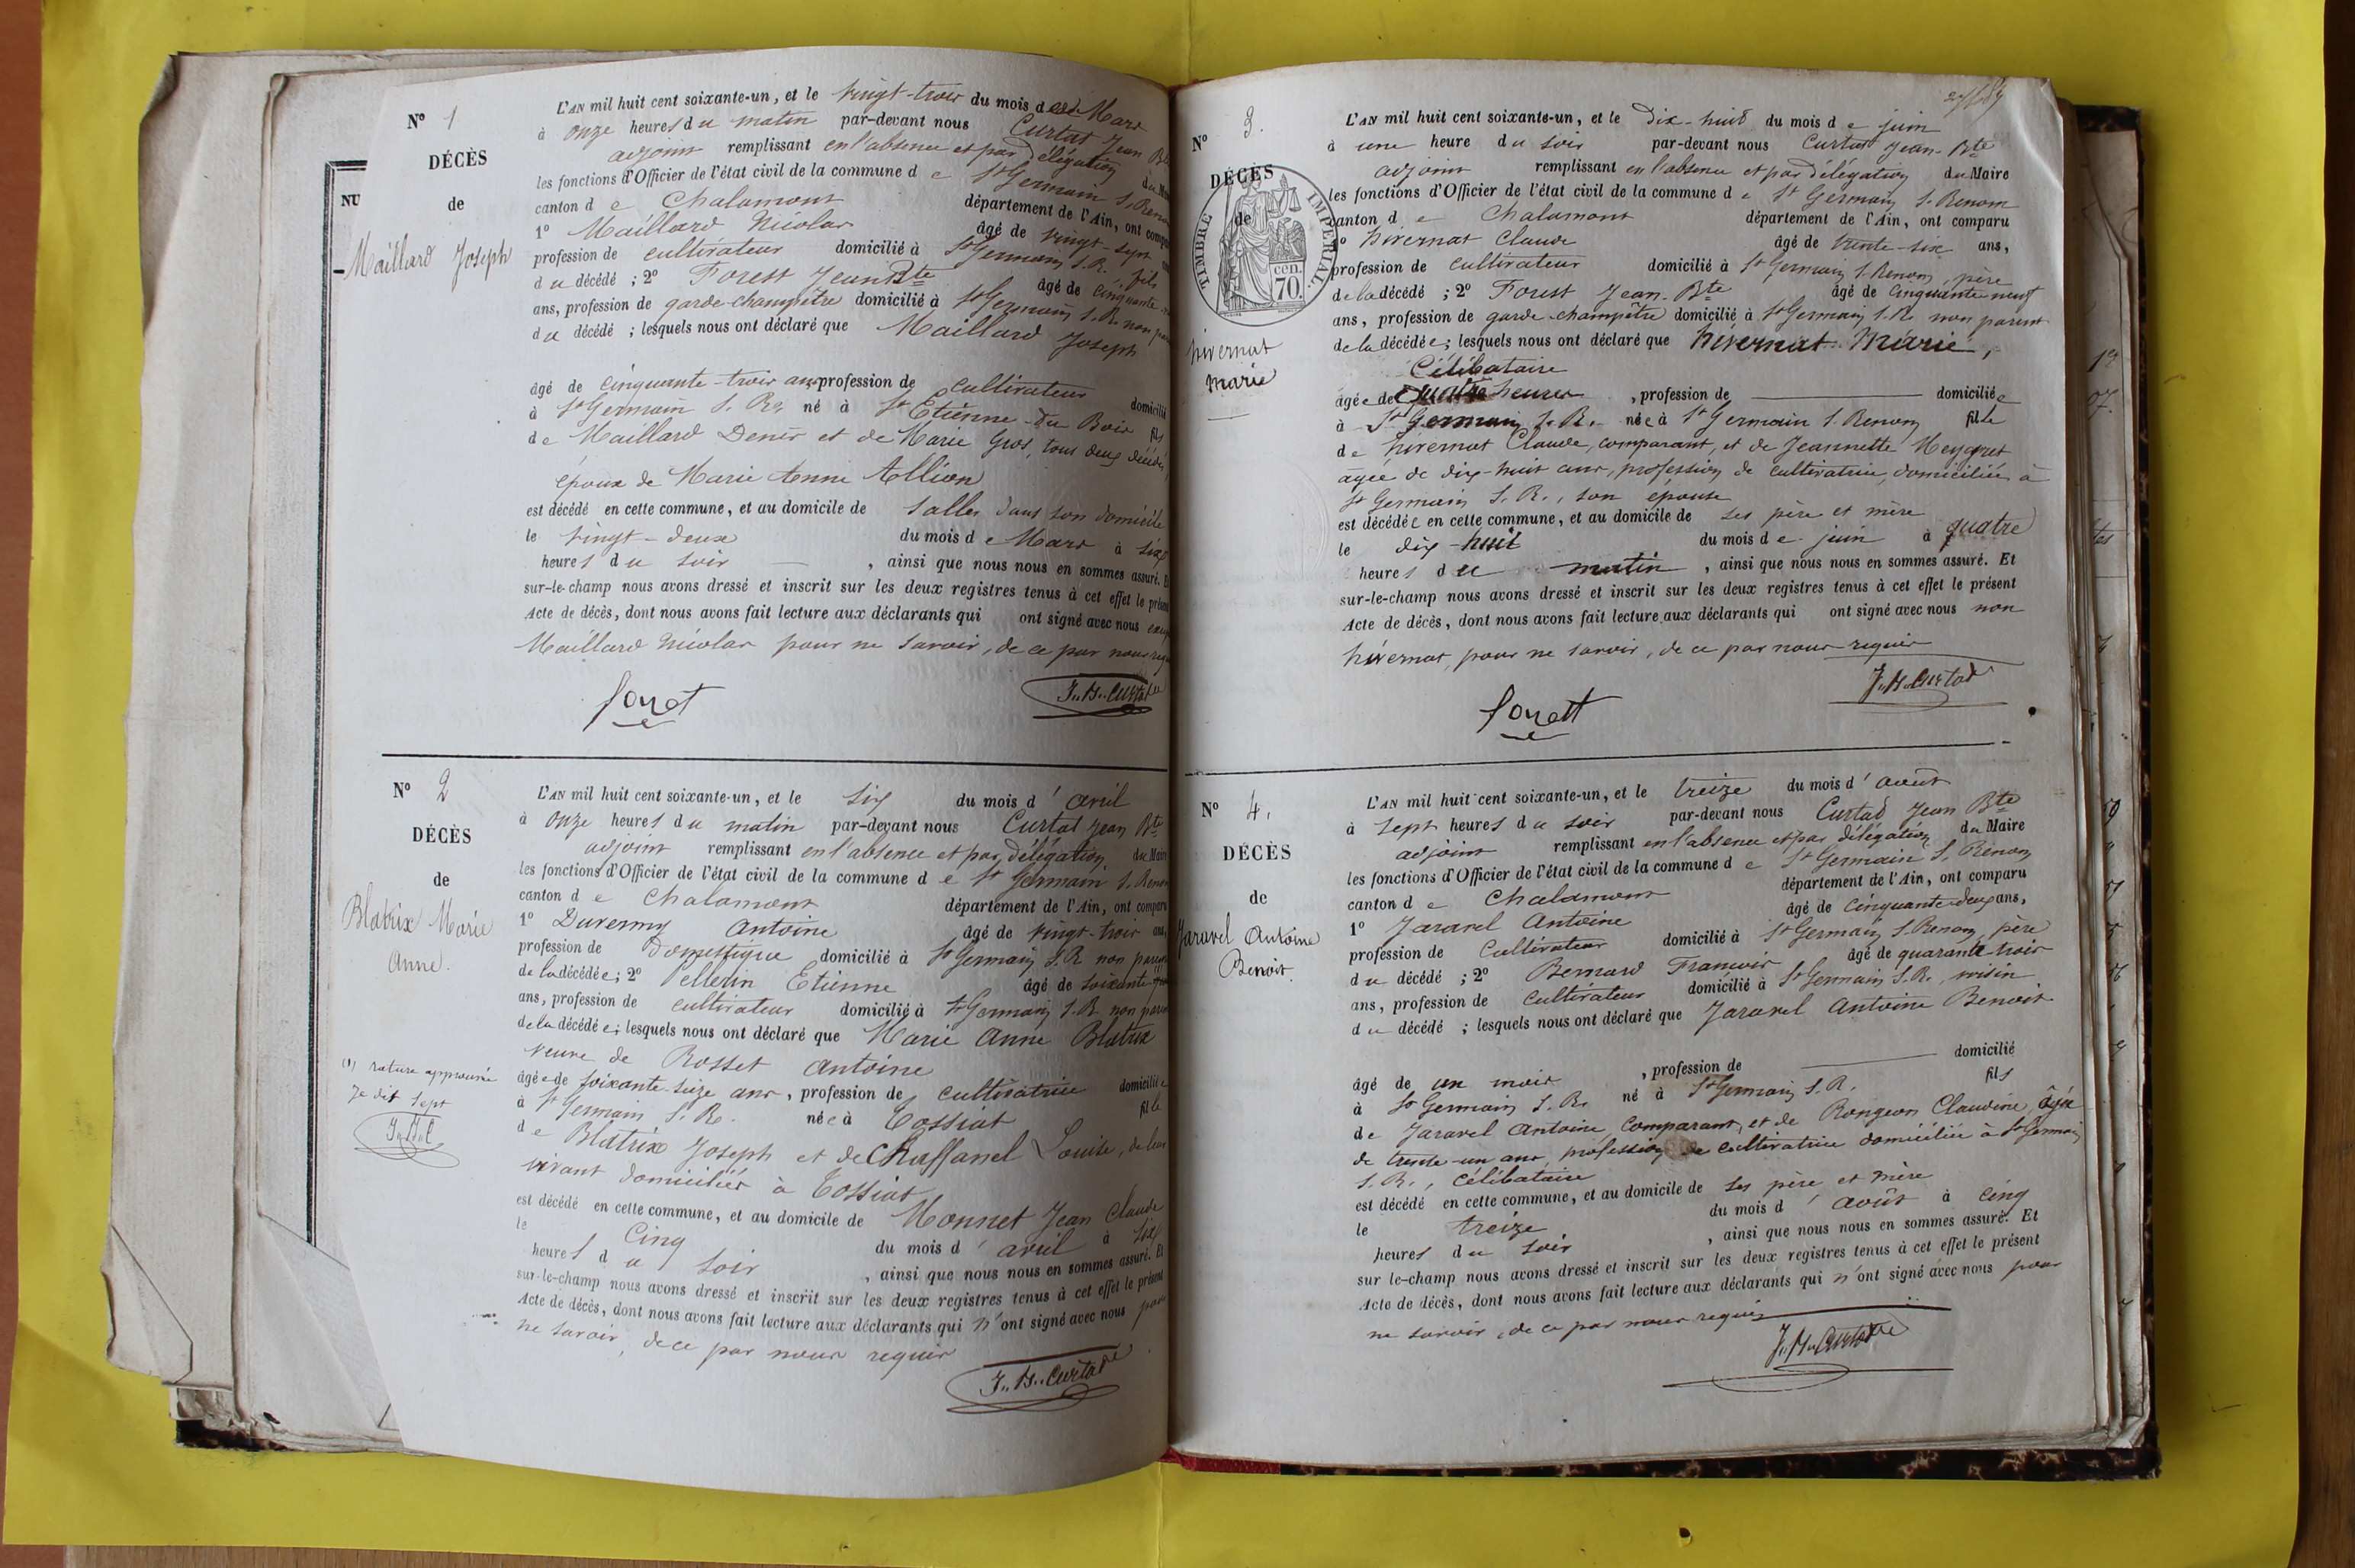 N° 1
DÉCÈS
de
Maillard Joseph
L'AN mil huit cent soixante-un, et le vingt-trois du mois de Mars
à onze heures du matin par-devant nous Curtat Jean Bte
adjoint remplissant en l'absence et par délégation du Maire
les fonctions d'Officier de l'état civil de la commune de St Germain S. Renon
canton de Chalamont département de l'Ain, ont comparu
1° Maillard Nicolas âgé de vingt-sept
profession de cultivateur domicilié à St Germain S. R. fils
du décédé ; 2° Forest Jean Bte âgé de cinquante
ans, profession de garde-champêtre domicilié à St Germain S. R. non
du décédé ; lesquels nous ont déclaré que Maillard Joseph
âgé de cinquante-trois ans profession de cultivateur domicilié
à St Germain S. R. né à St Etienne-du Bois fils
de Maillard Denis et de Marie Gros, tous deux décédés
époux de Marie Anne Allion
est décédé en cette commune, et au domicile de Salles dans son domicile
le vingt-deux du mois de Mars à six
heures du soir , ainsi que nous nous en sommes assuré. Et
sur-le-champ nous avons dressé et inscrit sur les deux registres tenus à cet effet le présent
Acte de décès, dont nous avons fait lecture aux déclarants qui ont signé avec nous
Maillard Nicolas pour ne savoir, de ce par nous
Forest
J.B. Curtat
N° 2
DÉCÈS
de
Blatrix Marie
Anne.
(1) rature approuvée
J.B.C
L'AN mil huit cent soixante-un, et le six du mois d'avril
à onze heures du matin par-devant nous Curtat Jean Bte
adjoint remplissant en l'absence et par délégation du Maire
les fonctions d'Officier de l'état civil de la commune de St Germain S. Renon
canton de Chalamont département de l'Ain, ont comparu
1° Antoine âgé de vingt-trois ans,
profession de Domestique domicilié à St Germain S. R non parent
de la décédée ; 2° Pellerin Etienne âgé de soixante
ans, profession de cultivateur domicilié à St Germain S. R non parent
de la décédée ; lesquels nous ont déclaré que Marie Anne Blatrix
veuve de Rosset Antoine
âgée de soixante-seize ans, profession de cultivatrice domiciliée
à St Germain S. R. née à Tossiat fille
de Blatrix Joseph et de Chaffanel Louise, de leur
vivant domiciliés à Tossiat
est décédé en cette commune, et au domicile de Monnet Jean Claude
le Cinq du mois d'avril à six
heures du soir , ainsi que nous nous en sommes assuré. Et
sur-le-champ nous avons dressé et inscrit sur les deux registres tenus à cet effet le présent
Acte de décès, dont nous avons fait lecture aux déclarants qui n'ont signé avec nous pour
ne savoir, de ce par nous requis
J.B. Curtat
N° 3.
DÉCÈS
de
TIMBRE IMPÉRIAL
70 cen.
hivernat
marie
L'AN mil huit cent soixante-un, et le dix-huit du mois de juin
à une heure du soir par-devant nous Curtat Jean-Bte
adjoint remplissant en l'absence et par délégation du Maire
les fonctions d'Officier de l'état civil de la commune de St Germain S. Renon
canton de Chalamont département de l'Ain, ont comparu
1° hivernat Claude âgé de trente-six ans,
profession de cultivateur domicilié à St Germain S. Renon, père
de la décédé ; 2° Forest Jean-Bte âgé de cinquante neuf
ans, profession de garde-champêtre domicilié à St Germain S. R. non parent
de la décédée ; lesquels nous ont déclaré que hivernat Marie,
Célibataire
âgée de quatre heures , profession de domiciliée
à St Germain S. R. née à St Germain S. Renon fille
de hivernat Claude, comparant, et de Jeannette
agée de dix-huit ans, profession de cultivatrice, domiciliée à
St Germain S. R., son épouse
est décédée en cette commune, et au domicile de ses père et mère
le dix-huit du mois de juin à quatre
heures du matin , ainsi que nous nous en sommes assuré. Et
sur-le-champ nous avons dressé et inscrit sur les deux registres tenus à cet effet le présent
Acte de décès, dont nous avons fait lecture aux déclarants qui ont signé avec nous non
hivernat, pour ne savoir, de ce par nous requis
Forest
J.B. Curtat
N° 4.
DÉCÈS
de
Jaravel Antoine
Benoit.
L'AN mil huit cent soixante-un, et le treize du mois d'août
à sept heures du soir par-devant nous Curtat Jean Bte
adjoint remplissant en l'absence et par délégation du Maire
les fonctions d'Officier de l'état civil de la commune de St Germain S. Renon
canton de Chalamont département de l'Ain, ont comparu
1° Jaravel Antoine âgé de cinquante-deux ans,
profession de Cultivateur domicilié à St Germain S. Renon, père
du décédé ; 2° Bernard Francois âgé de quarante trois
ans, profession de Cultivateur domicilié à St Germain S. R., voisin
du décédé ; lesquels nous ont déclaré que Jaravel Antoine Benoit
âgé de un mois , profession de domicilié
à St Germain S. R. né à St Germain S. R. fils
de Jaravel Antoine, comparant, et de Rongeon Claudine, âgée
de trente-un ans, profession de cultivatrice domiciliée à St Germain
S. R., célibataire
est décédé en cette commune, et au domicile de ses père et mère
le treize du mois d'août à cinq
heures du soir , ainsi que nous nous en sommes assuré. Et
sur le-champ nous avons dressé et inscrit sur les deux registres tenus à cet effet le présent
Acte de décès, dont nous avons fait lecture aux déclarants qui n'ont signé avec nous pour
ne savoir, de ce par nous requis
J.B. Curtat